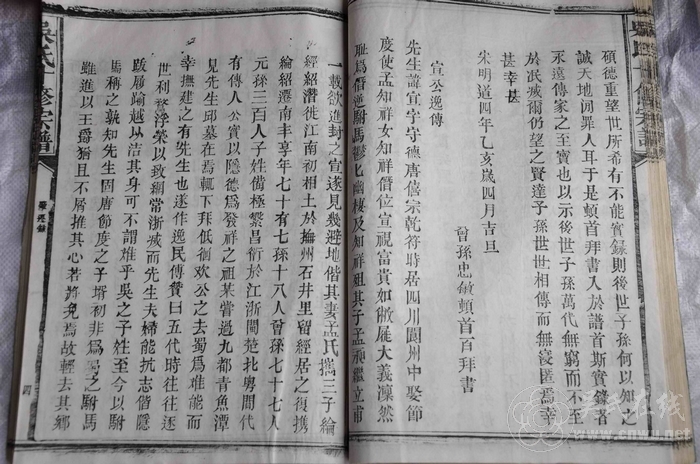 碩德重望世所希有不能實錄則後世子孫何以知之
誠天地洞罪人耳于是頓首拜書入於譜首斯實錄者
永遠傳家之至寶也以示後世子孫萬代無窮而不至
於泯滅爾仍望之賢達子孫世世相傳而無寢匿焉幸
甚幸甚
宋明道四年乙亥歲四月吉旦
曾孫忠敏頓首百拜書
宣公逸傳
先生諱宣字守德唐僖宗乾符時居四川閬州中娶節
度使孟知祥女知祥僭位宣視富貴如敝屣大義凜然
恥爲僭逆駙馬鬱匕幽棲及知祥殂其子孟昶繼立甫
一載欲進封之宣遂見幾避地偕其妻孟氏攜三子綸
經紹潛徙江南初相土於撫州石井里留經居之復携
綸紹遷南丰享年七十有七孫十八人曾孫七十七人
元孫三百人子姓俻極繁昌衍於江浙閩楚北粵間代
有傳人公實以隱德爲發祥之祖某甞過九都青魚潭
見先生邱墓在焉輒下拜低徊歎公之去蜀爲難能而
幸撫建之有先生也遂作逸民傳贊曰五代時往往逐
世利務浮榮以致綱常渐滅而先生夫婦能抗志偕隱
跋履踰越以洁其身可不謂难乎吳之子姓至今以駙
馬稱之孰知先生固唐節度之子壻初非爲蜀之駙馬
雖進以王爵猶且不屑推其心若將浼焉故輕去其鄉
吳氏十修宗譜
吳氏十修宗譜
四
吴氏在线
www.cnwu.net